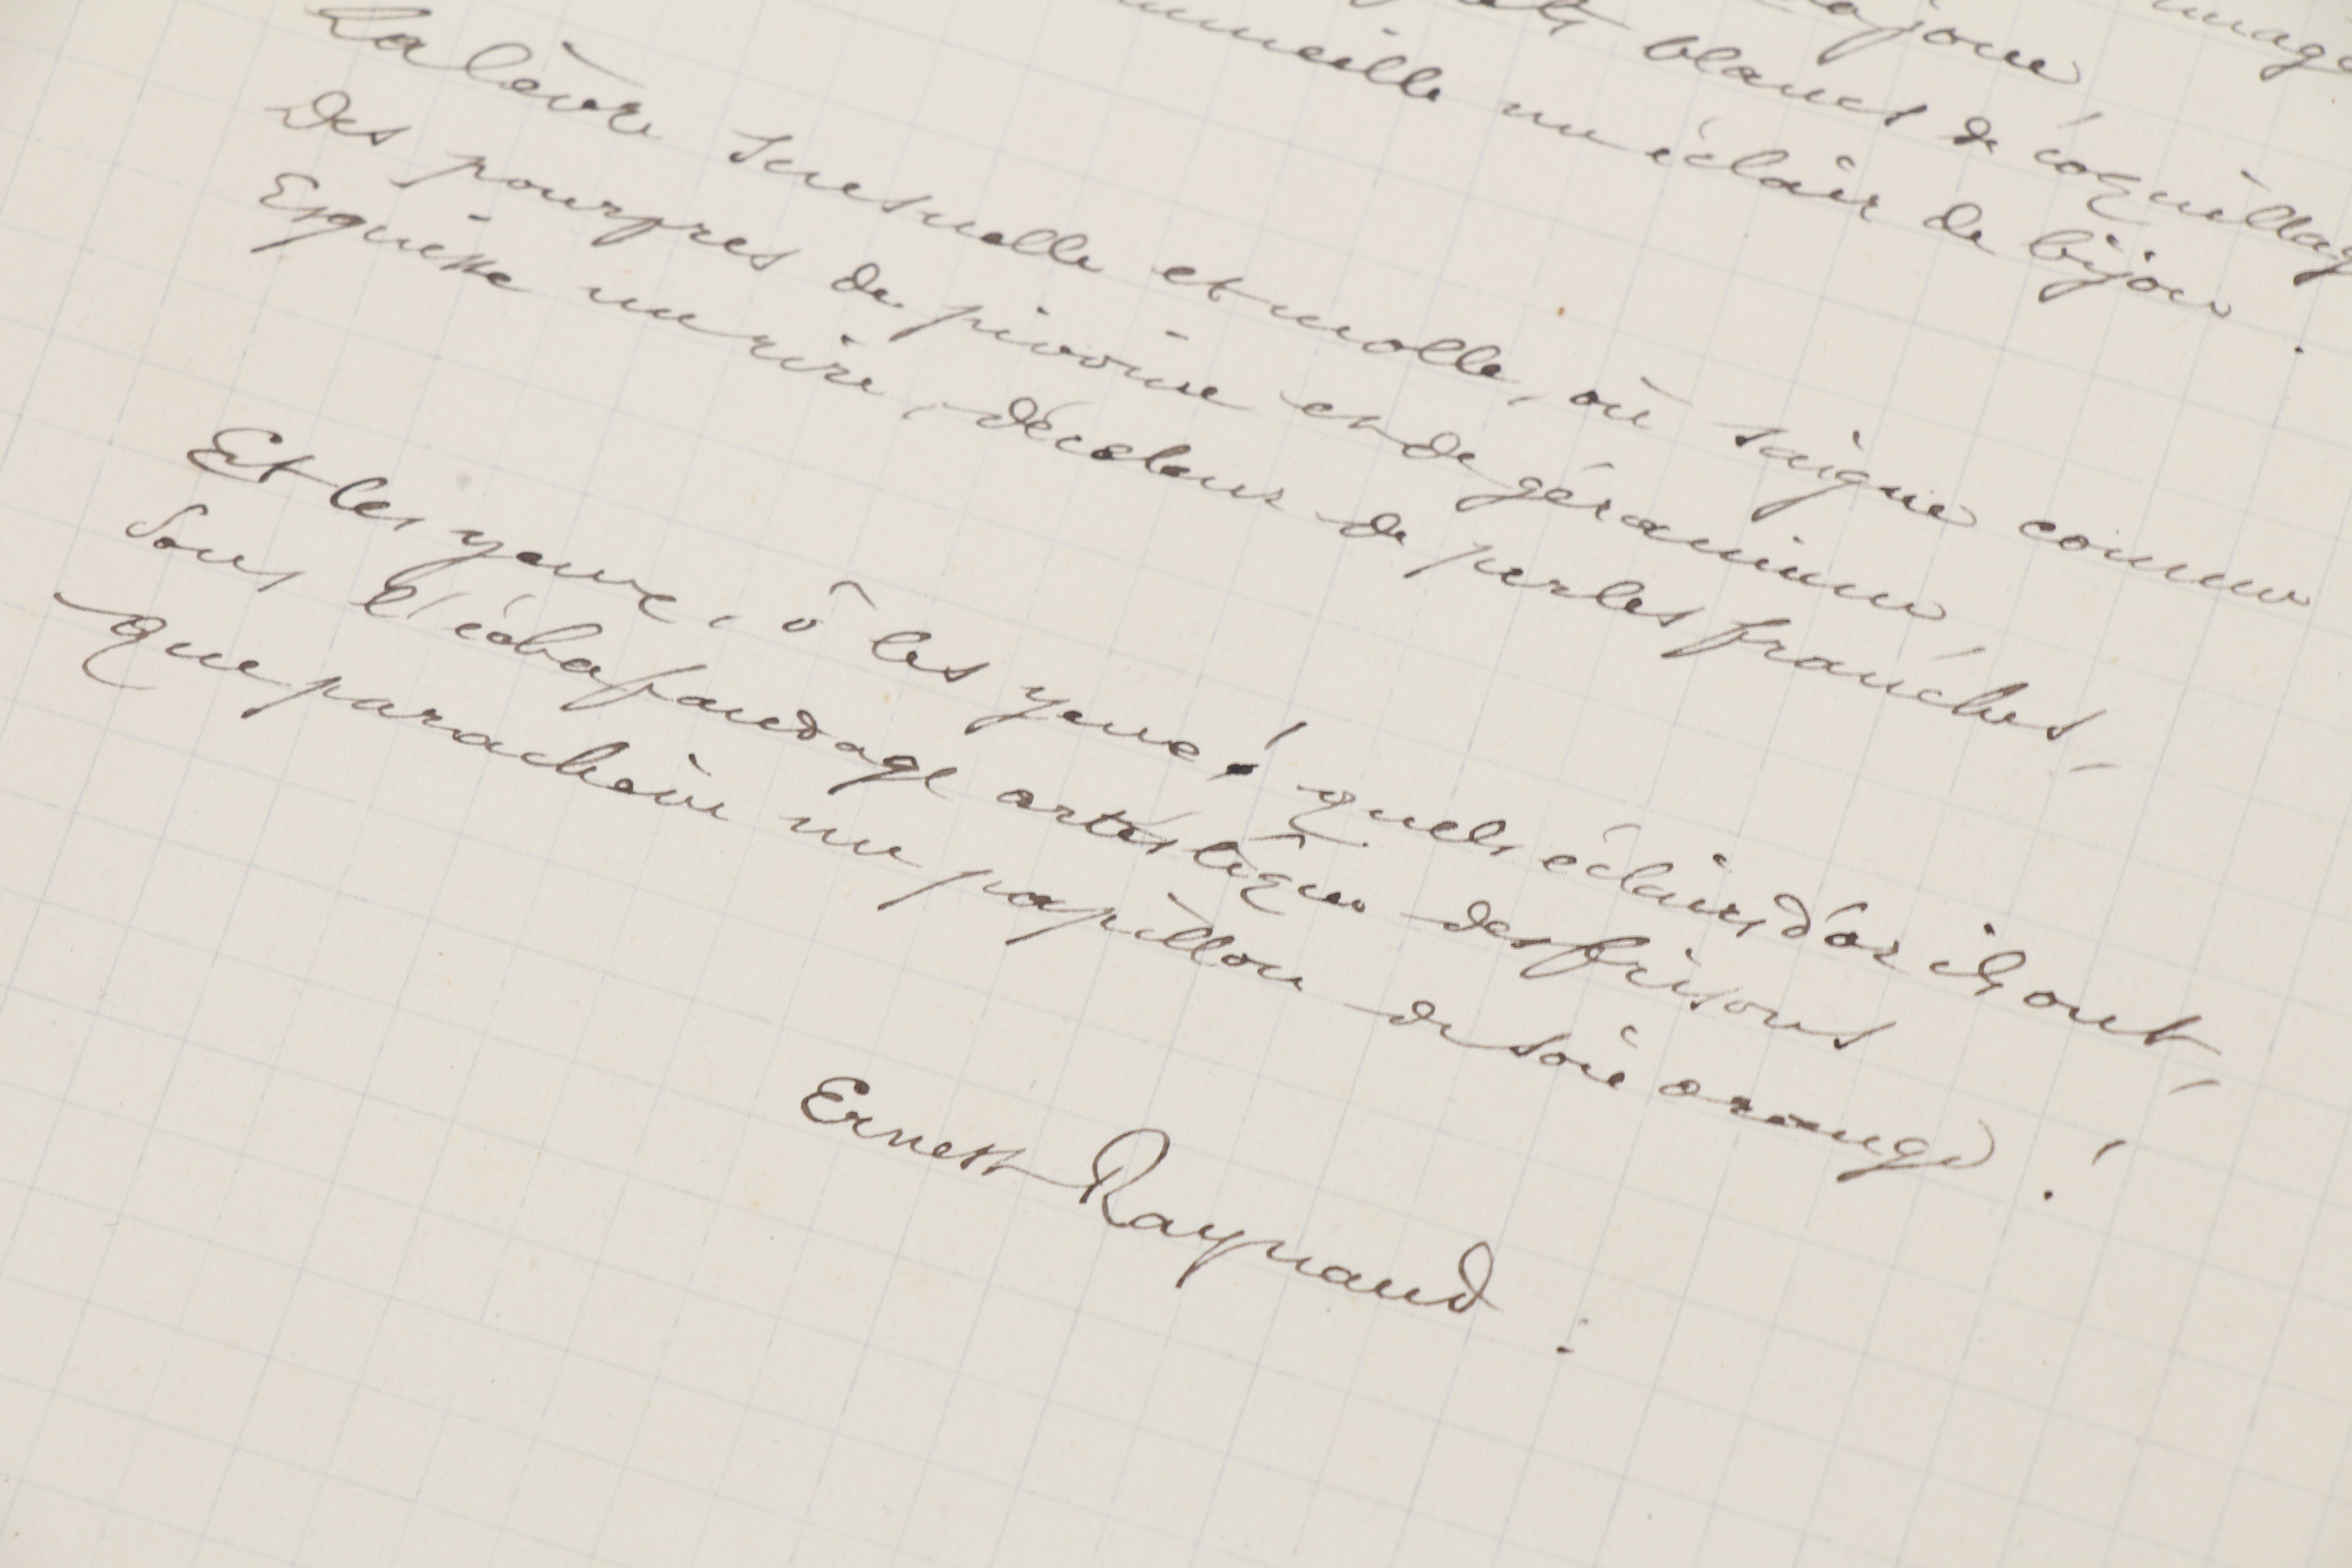 image
ajoue
blancs de coquillag
un éclair de bijou.
La lèvre sensuelle et molle, où saigne comme
Des pourpres de pivoine et de géranium
Esquisse un rire, déceleur de perles franches,
Et les yeux, ô les yeux! quels éclairs d'or ils ont,
Sous l'échafaudage artistique des frisons
Que parachève un papillon de soie orange!
Ernest Raynaud.